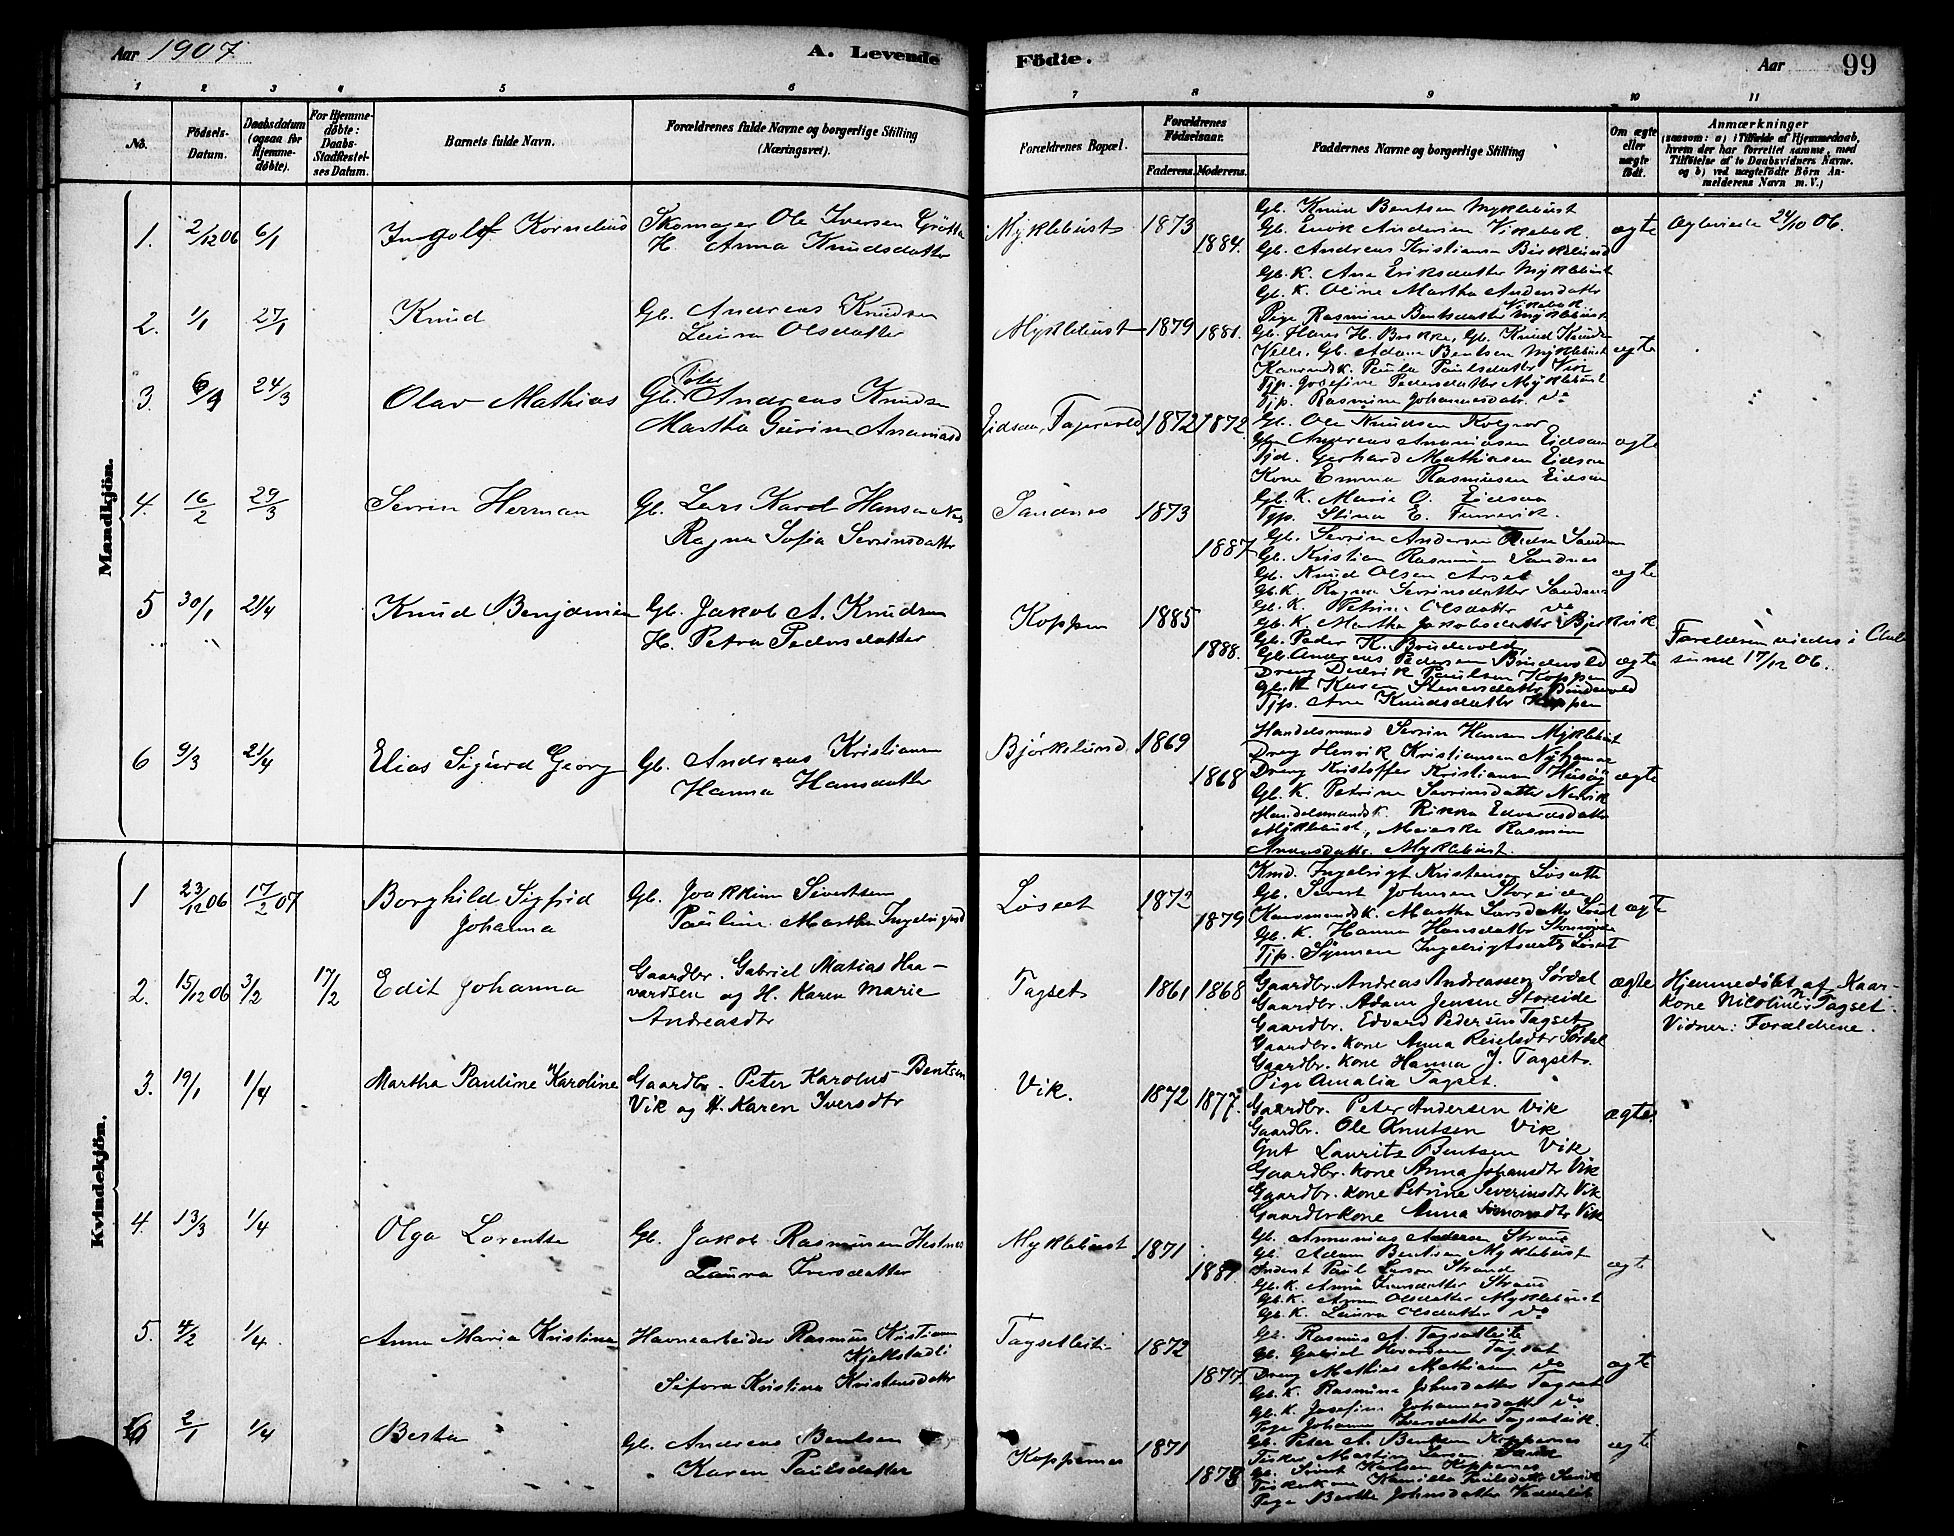 Aar 1907
A. Levende
Födte.
Aar
99
1 2 3 4 5 6 7 8 9 10 11
No.
Födsels-Datum.
Daabsdatum (ogsaa for Hjemmedøbte).
For Hjemmedøbte: Daabs-Stadfæstelses Datum.
Barnets fulde Navn.
Forældrenes fulde Navne og borgerlige Stilling (Næringsvei).
Forældrenes Bopæl.
Forældrenes Fødselsaar.
Faderens. Moderens.
Faddernes Navne og borgerlige Stilling
Om ægte eller uægte födt.
Anmærkninger
(saasom: a) i Tilfælde af Hjemmedaab, hvem der har forrettet samme, med Tilföielse af to Daabsvidners Navne, og b) ved uægtefödte Börn Anmelderens Navn m. V.)
Mandkjön.
1. 2/12 06 6/1 Ingolf Kornelius
Skomager Ole Iversen Grøtta
H. Anna Knudsdatter
Myklebust 1873 1884.
Gb. Knud Bentsen Myklebust
Gb. Enok Andersen Vikebak
Gb. Andreas Kristiansen Bjørkelund
Gb. K. Ane Eriksdatter Myklebust
Gb. K. Oline Martha Andersdatter Vikebak
Pige Rasmine Bentsdatter Myklebust
ægte
Ægteviede 24/10 06.
2. 1/1 27/1 Knud
Gb. Andreas Knudsen
Laura Olsdatter
Myklebust 1879 1881.
Gb. Hans H. Bakke, Gb. Knud Knudsen
Velle, Gb. Adam Bentsen Myklebust
Kaarmandsk. Paula Paulsdatter Vik
Tjp. Josefine Pedersdatter Myklebust
Tjp. Rasmine Johannesdatr. do
ægte
3. 24/3 Olav Mathias
Gb. Peter Andreas Knudsen
Martha Gurine Ananiasd
Eidsaa, Fagervold 1872 1872.
Gb. Ole Knudsen Kolgrov
Gbm Andreas Ananiasen Eidsaa
Tjd. Gerhard Mathiasen Eidsaa
Kone Emma Rasmusen Eidsaa
Gb. K. Marie O. Eidsaa
Tjp. Stina E.
ægte
4. 16/2 29/3 Sevrin Herman
Gb. Lars Karol Hansen Nes
Ragna Sofia Sevrinsdatter
Sandnes 1873 1887
Gb. Sevrin Andersen Sandnes
Gb. Kristian Rasmusen Sandnes
Gb. Knud Olsen Arset
Gb. K. Ragna Sevrinsdatter Sandnes
Gb. K. Petrine Olsdatter do
Gb. K. Martha Jakobsdatter Bjerkvik
ægte
5 30/1 21/4 Knud Benjamin
Gb. Jakob A. Knudsen
H. Petra Pedersdatter
Koppen 1885 1888.
Gb. Peder K. Brudevold,
Gb. Andreas Pedersen Brudevold
Dreng Didrik Paulsen Koppen
Gb. K. Karen Steinersdatter Brudevold
Tjp. Ane Knudsdatter Koppen
ægte
Forældrene viedes i Aalesund 17/12 06.
6 9/3 21/4 Elias Sigurd Georg
Gb. Andreas Kristiansen
Hanna Hansdatter
Bjørkelund 1869 1868
Handelsmand Sevrin Hansen Myklebust
Dreng Henrik Kristiansen Nyhamn
Dreng Kristoffer Kristiansen Husøy
Gb. K. Petrine Sevrinsdatter Nervik
Handelsmandsk. Rikka Edvardsdatter
Myklebust, Meierske Rasmine
Andersdatter, Myklebust.
ægte
Kvindekjön.
1 23/12 06 17/2 07 Borghild Sigfrid Johanna
Gb. Joakkim Sivertsen
Pauline Martha Ingebrigtsd
Løset 1872 1879
Kmd. Ingebrigt Kristensen Løseth
Gb. Sivert Johnsen Storeide
Kaarmandsk. Martha Larsdatter Løset
Gb. K. Hanna Hansdatter Storeide
Tjp. Synnøve Ingebrigtsdatter Løset
ægte
2. 15/12 06 3/2 17/2 Edit Johanna
Gaardbr. Gabriel Matias Haa-
vardsen og H. Karen Marie
Andreasdtr
Tagset 1861 1868
Gaardbr. Andreas Andreassen Sørdal
Gaardbr. Adam Jensen Storeide
Gaardbr. Edvard Pedersen Tagset
Gaardbr. kone Anna Reielsdtr Sørdal
Gaardbr. kone Hanna J. Tagset
Pige Amalia Tagset.
ægte
Hjemmedøbt af Kaar-
kone Nicoline N. Tagset.
Vidner: Forældrene.
3. 19/1 1/4 Martha Pauline Karoline
Gaardbr. Peter Karolus Bentsen
Vik og H. Karen Iversdtr
Vik. 1872 1877.
Gaardbr. Peter Andersen Vik
Gaardbr. Ole Knutsen Vik
Gut Lauritz Bentsen Vik
Gaardbr. kone Anna Johansdtr Vik
Gaardbr. kone Petrine Severinsdtr Vik
Gaardbrkone Anna Simonsdtr Vik
ægte
4. 13/3 1/4 Olga Lorentse
Gb. Jakob Rasmusen Hestnes
Laura Iversdatter
Myklebust 1871 1881.
Gb. Ammunias Andersen Strand
Gb. Adam Bentsen Myklebust
Inderst Paul Larsen Strand
Gb. K. Anna Iversdatter Strand
Gb. K. Anne Olsdatter Myklebust
Gb. K. Laura Olsdatter do
ægte
5. 4/2 1/4 Anna Maria Kristina
Havnearbeider Rasmus Kristiansen
Kjellstadli
Sefora Kristina Kristensdatter
Tagsetleiti 1872 1877
Gb. Rasmus A. Tagsetleite
Gb. Gabriel Havardsen Tagset
Dreng Mathias Mathiasen do
Gb. K. Rasmine Johnsdatter Tagset
Gb. K. Josefine Johannesdatter do
Pige Johanne Iversdatter Tagsetleit.
ægte
6 2/1 1/4 Berta
Gb. Andreas Bentsen
Karen Paulsdatter
Koppernes 1871 1878
Gb. Peter A. Bentsen Koppernes
Fisker Martin Larsen
Gb. Sivert Karlsen Koppernes
Fiskerkone Kamilla Paulsdatter
Pige Berthe Johnsdatter
ægte